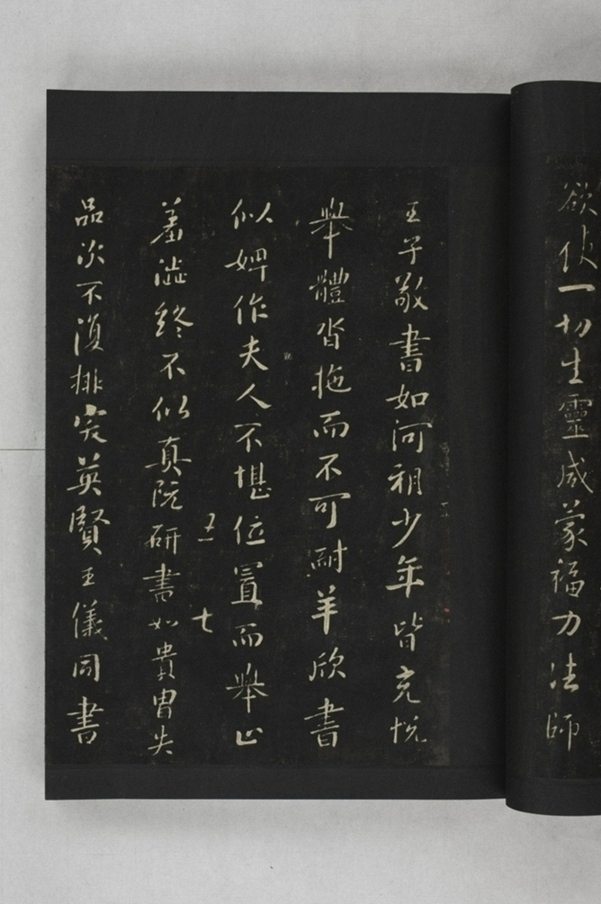 欲使一切生靈咸蒙福力法師
王子敬書如河朔少年皆充悅
舉體沓拖而不可耐羊欣書
似婢作夫人不堪位置而舉止
羞澁終不似真阮研書如貴胄失
品次不復排突英賢王儀同書
五一 七